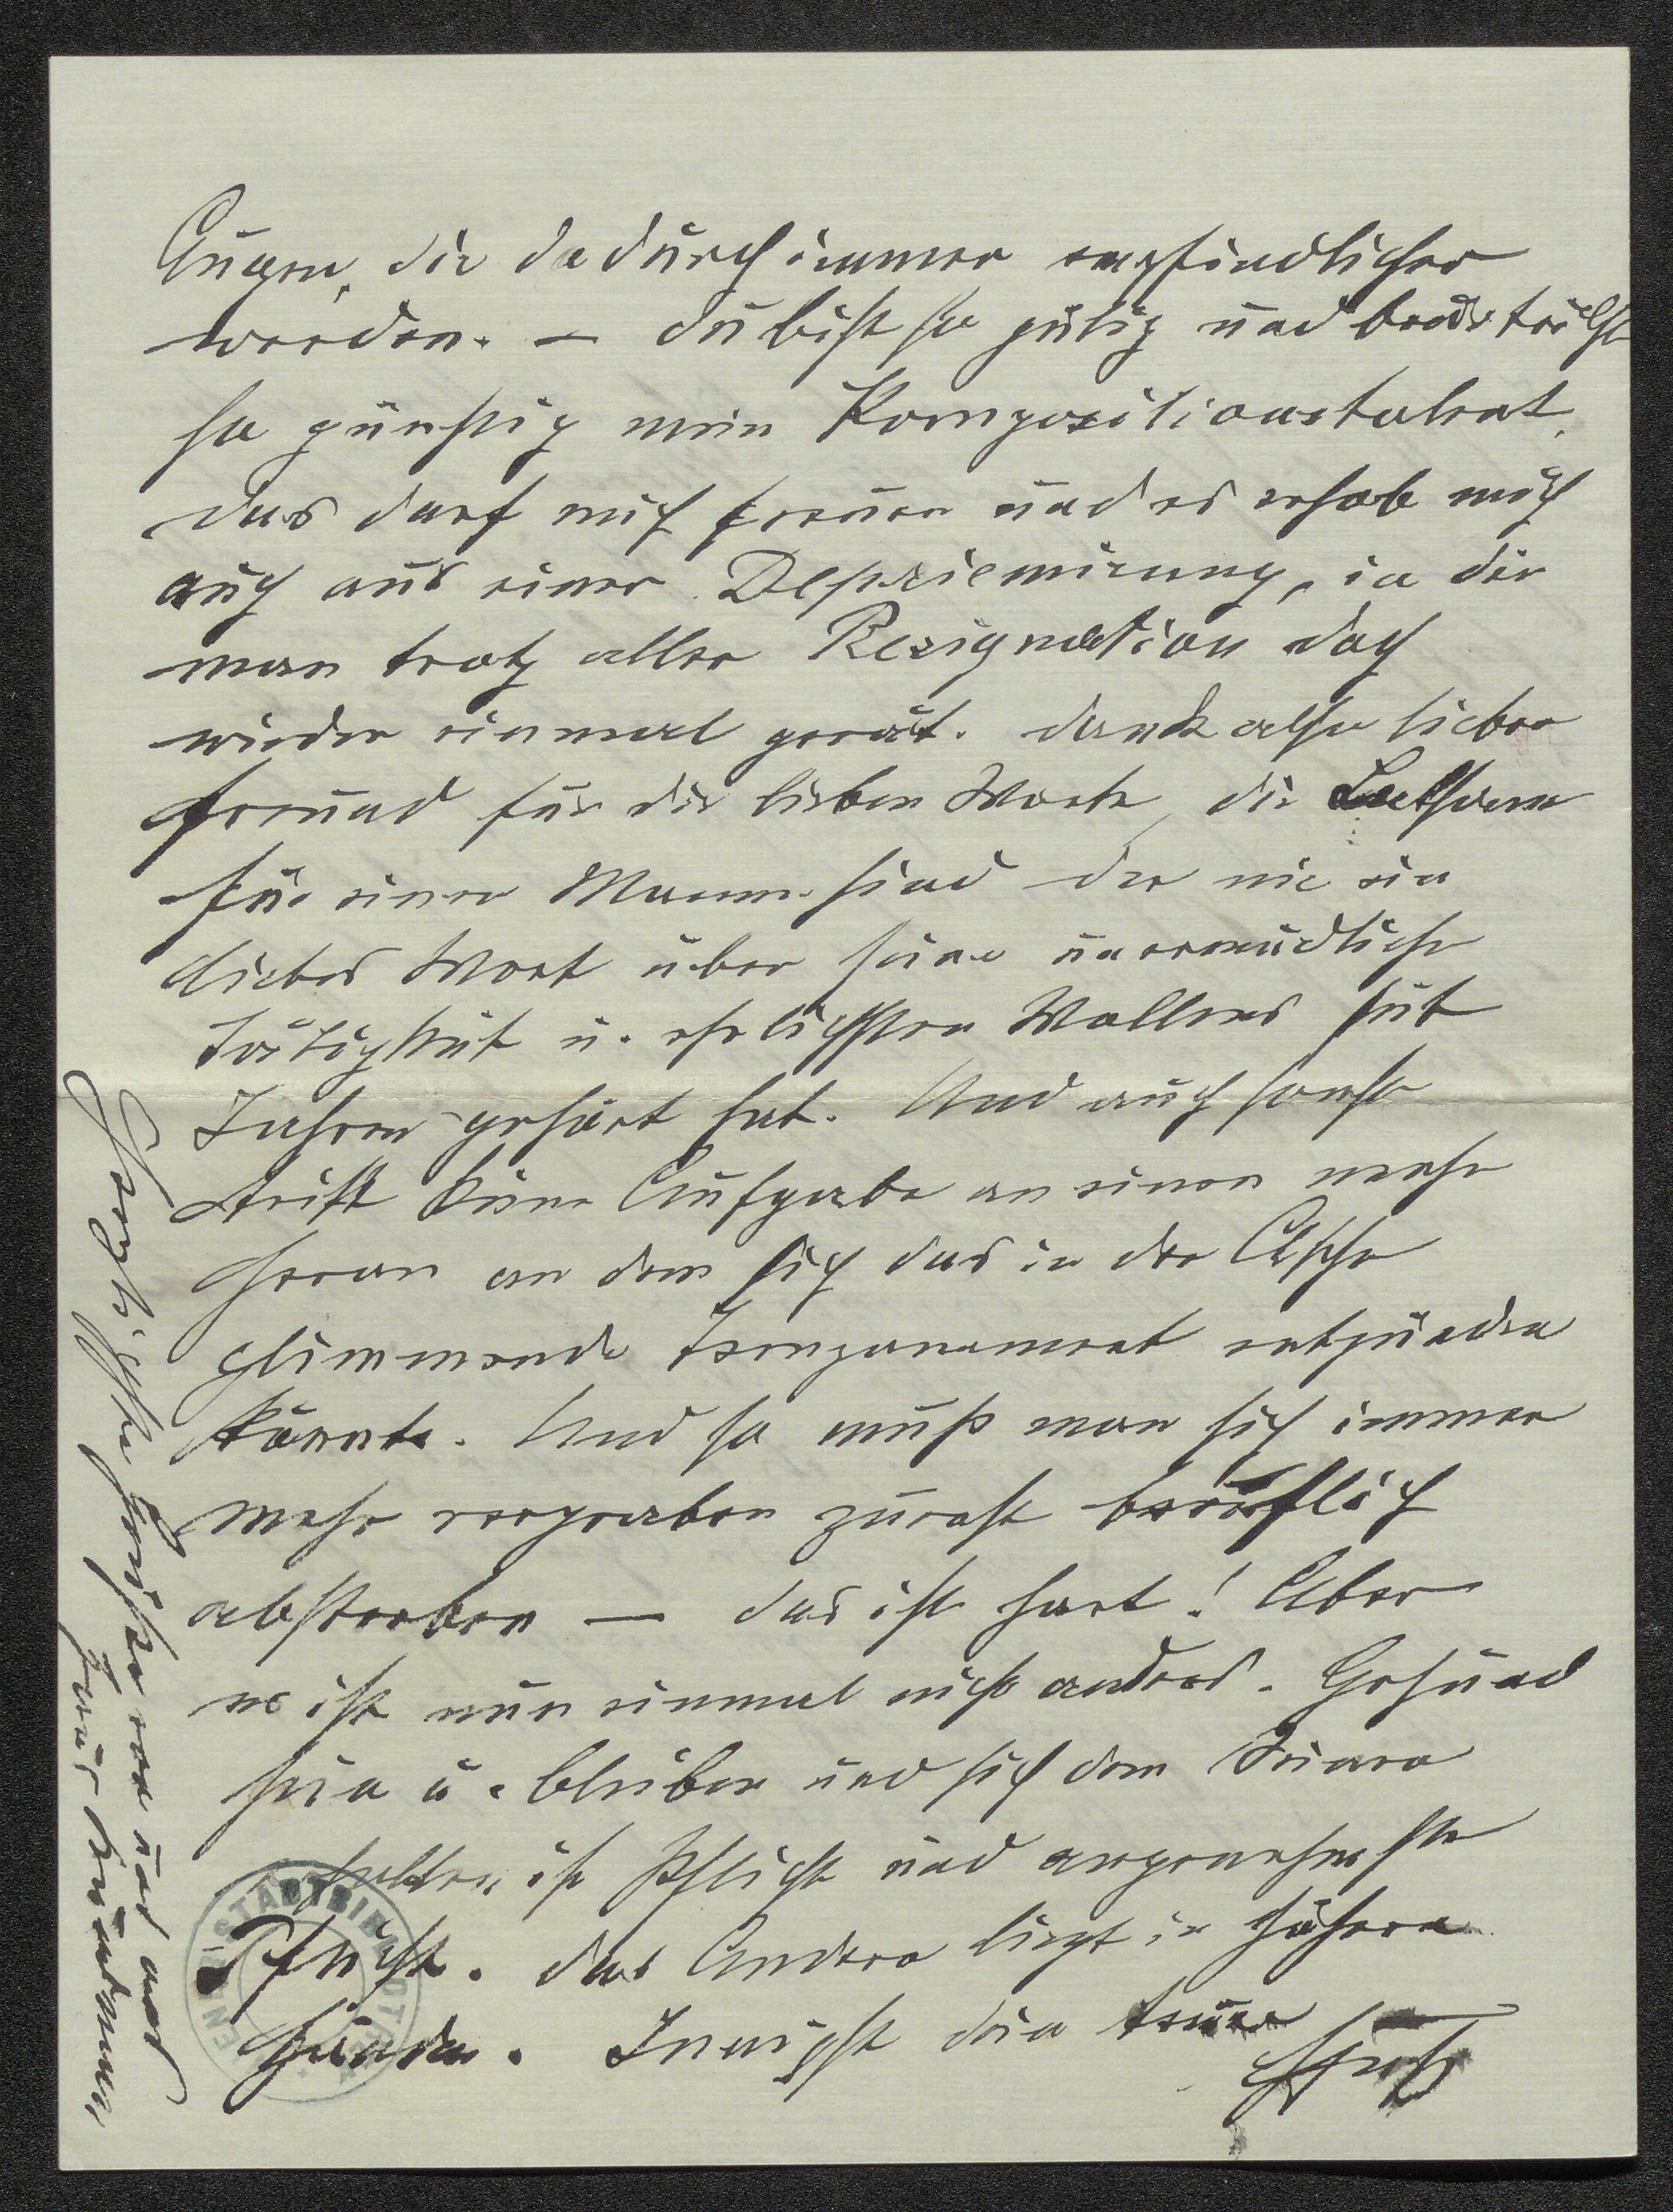 Augen, die dadurch immer empfindlicher
werden. – Du bist so gütig und beurteilst
so günstig mein Kompositionstalent,
das darf mich freuen und es erhob mich
auch aus einer Depriemirung, in die
man trotz aller Resignation doch
wieder einmal gerät. Dank also lieber
Freund für die lieben Worte, die Balsam
für einen Mann sind der nie ein
liebes Wort über seine unermüdliche
Tätigkeit u. ehrlichsten Wollens seit
Jahren gehört hat. Und auch sonst
tritt keine Aufgabe an einen mehr
heran an dem sich das in der Asche
glimmende Temperament entzünden
könnte. Und so muß man sich immer
mehr vergraben zuerst beruflich
absterben – das ist hart! Aber
es ist nun einmal nicht anders. Gesund
sein u. bleiben und sich dem Seinen
erhalten ist Pflicht und angenehmste
Pflicht. Das Andere liegt in höheren
Händen. Innigst dein treuer
Herzlichste Grüße von uns und
STADTBIBLIOTHEK WIEN